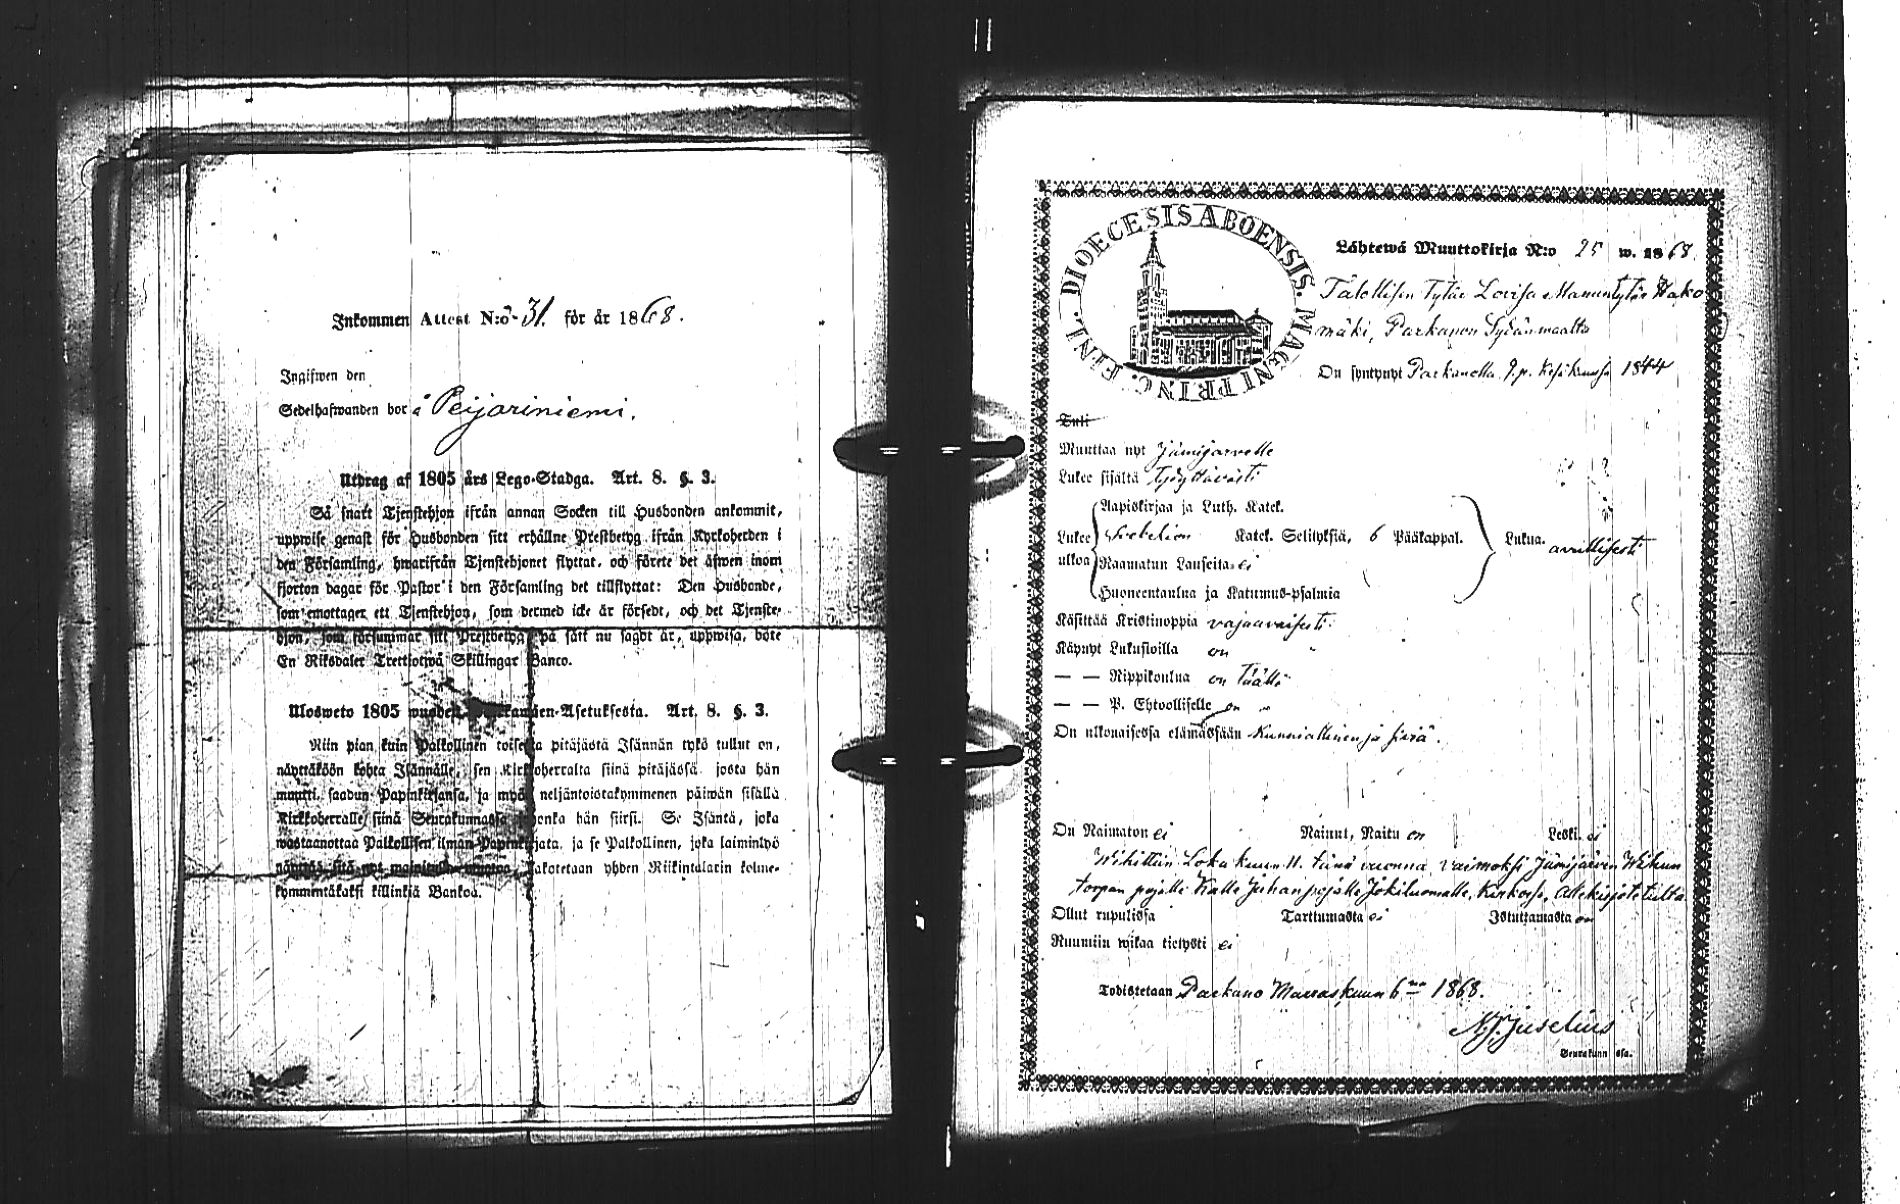 Inkommen Attest N:o 31. för år 1868.
Ingifwen den
Sedelhafwanden bor å Peijariniemi.
Utdrag af 1805 års Lego-Stadga. Art. 8. §. 3.
Så snart Tjenstehjon ifrån annan Socken till Husbonden ankommit,
uppwise genast för Husbonden sitt erhållne Prestbetyg ifrån Kyrkoherden i
den Församling, hwarifrån Tjenstehjonet flyttat, och förete det äfwen inom
fjorton dagar för Pastor i den Församling det tillflyttat: Den Husbonde,
som emottager ett Tjenstehjon, som dermed icke är försedt, och det Tjenste-
hjon, som försummar sitt Prestbetyg på sätt nu sagdt är, uppwisa, böte
En Riksdaler Trettiotwå Skillingar Banco.
Ulosweto 1805 wuoden Asetuksesta. Art. 8. §. 3.
Niin pian kuin Palkollinen toisesta pitäjästä Isännän tykö tullut on,
näyttäköön kohta Isännälle, sen Kirkkoherralta siinä pitäjässä josta hän
muutti, saadun Papinkirjansa, ja myös neljäntoistakymmenen päiwän sisällä
Kirkkoherralle siinä Seurakunnassa johonka hän siirsi. Se Isäntä, joka
wastaanottaa Palkollisen ilman Papinkirjata, ja se Palkollinen, joka laiminlyö
näyttää sitä nyt mainittu sakotetaan yhden Riikintalarin kolme-
kymmentäkaksi killinkiä Bankoa.
DIOECESIS ABOENSIS. MAGNI PRINC. FINL.
Lähtewä Muuttokirja N:o 25 w. 1868.
Talollisen Tytär Lovisa Manuntytär Hako
mäki, Parkanon Sydänmaalta
On syntynyt Parkanolla 9.p. Kesäkuussa 1844
Tuli
Muuttaa nyt Jämijärvelle
Lukee sisältä Tyydyttävästi
Lukee ulkoa
Aapiskirjaa ja Luth. Katek.
Svebelion Katek. Selityksiä, 6 Pääkappal.
Raamatun Lauseita ei
Huoneentaulua ja Katumus-psalmia
Lukua. avullisesti
Käsittää Kristinoppia vajaavaisesti.
Käynyt Lukusioilla on
— — Rippikoulua on täällä
— — P. Ehtoolliselle on „
On ulkonaisessa elämässään Kunniallinen ja siviä.
On Naimaton ei Nainut, Naitu on Leski ei
Wihittiin Loka kuun 11. tänä vuonna vaimoksi Jämijärven Wihun
torpan pojalle Kalle Juhanpojalle Jokiluomalle, Kirkossa, allekirjoitetulta
Ollut rupulissa Tarttumasta ei Istuttamasta on
Ruumiin wikaa tietysti ei
Todistetaan Parkano Marraskuun 6 na 1868.
Juselius